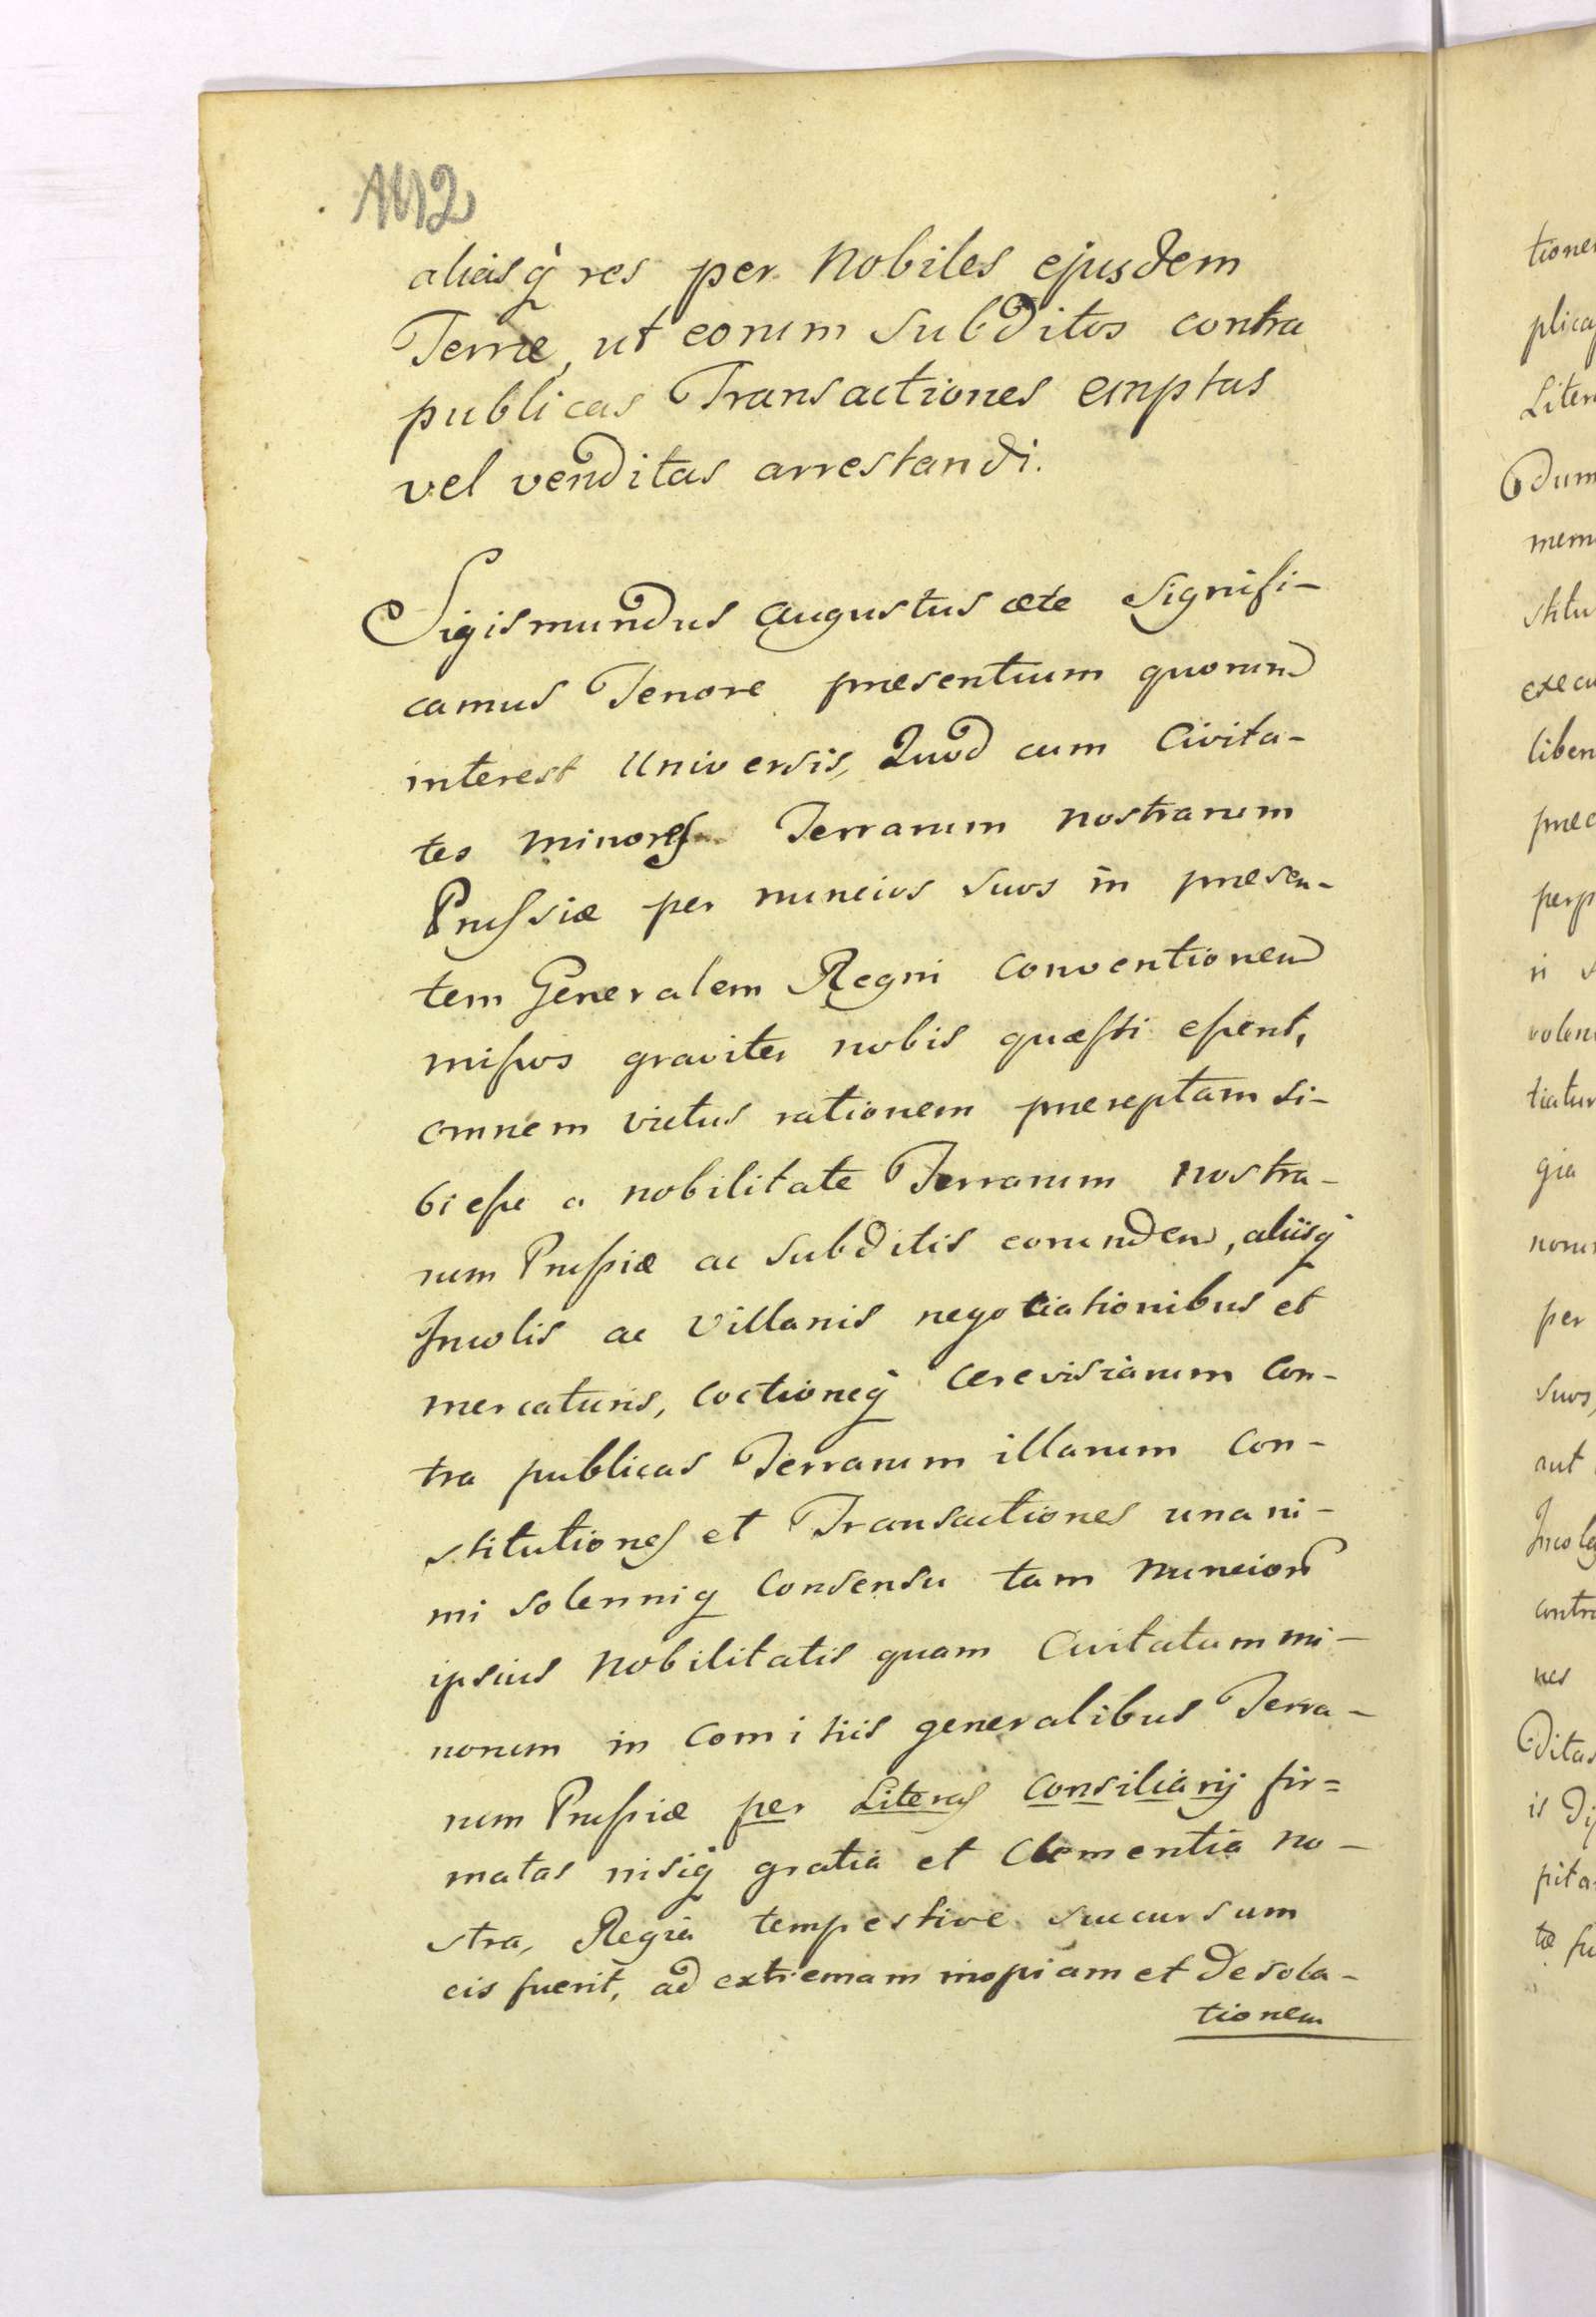 1112
aliasq̀ res per Nobiles ejusdem
Terræ, ut eorum Subditos contra
publicas Transactiones emptas
vel venditas arrestandi.
Sigismundus Augustus ætc Signifi-
camus Tenore præsentium quorum
interest Universis, Quod cum Civita-
tes minores Terrarum nostrarum
Prussiæ per nuncios suos in præsen-
tem Generalem Regni Conventionem
missos graviter nobis quæsti essent,
omnem victus rationem præreptam si-
bi esse a nobilitate Terrarum nostra-
rum Prussiæ ac Subditis eorundem, aliisq̀
Incolis ac Villanis negotiationibus et
mercaturis, coctioneq̀ cerevisiarum Con-
tra publicas Terrarum illarum Con-
stitutiones et Transactiones unani-
mi solenniq̀ Consensu tam Nuncior̃
ipsius Nobilitatis quam Civitatum mi-
norum in Comitiis generalibus Terra-
rum Prussiæ per Literas Consiliarij fir=
matas nisiq̀ gratia et Clementia no-
stra, Regia tempestive succursum
eis fuerit, ad extremam inopiam et Desola-
tionem
tione
plica
Liter
dum
mem
stitu
execu
liben
præc
perp
in s
volen
tiatur
gia
norum
per
suos,
aut
Incola
contra
nes
ditas
is di
pita
tæ fu